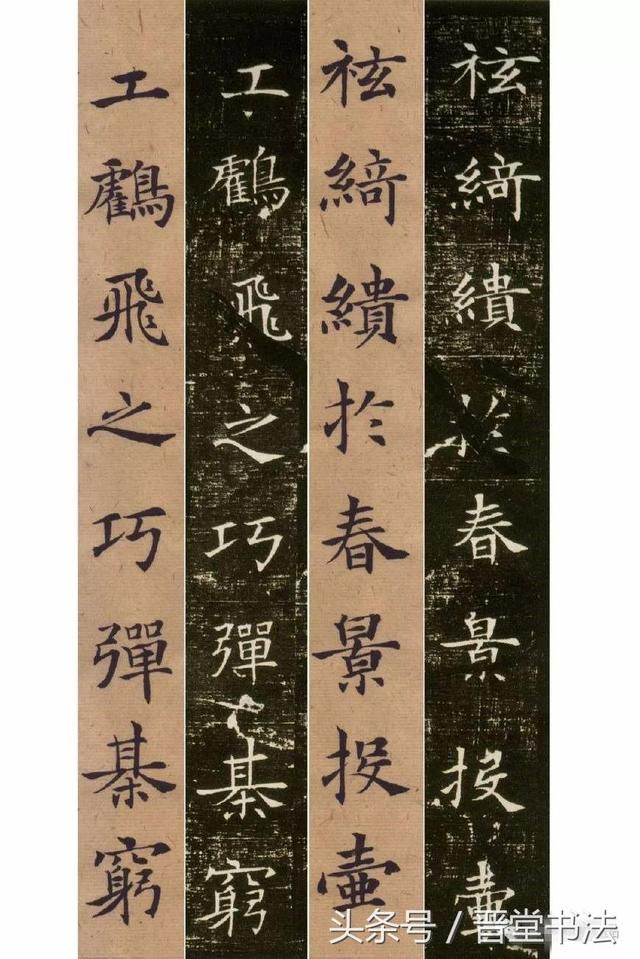 袨綺繢於春景投壺
袨綺繢於春景投壺
工鸖飛之巧彈棊窮
工鸖飛之巧彈棊窮
头条号 / 晋堂书法